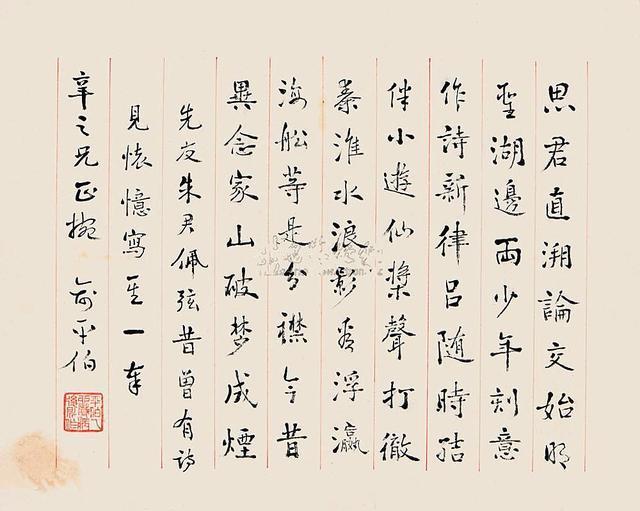 思君直溯論交始明
聖湖邊兩少年刻意
作詩新律呂随時結
伴小遊仙槳聲打徹
秦淮水浪影看浮瀛
海船等是分襟今昔
異念家山破梦成煙
先友朱君佩弦昔曾有詩
見懐憶寫一
辛之兄正腕 俞平伯